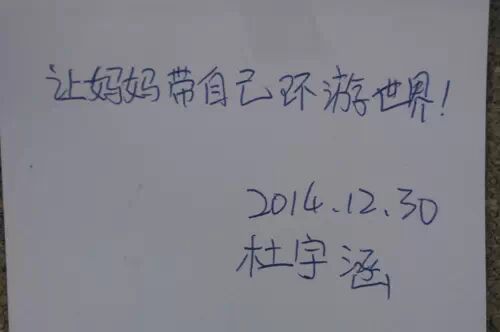 让妈妈带自己环游世界!
2014.12.30
杜宇涵